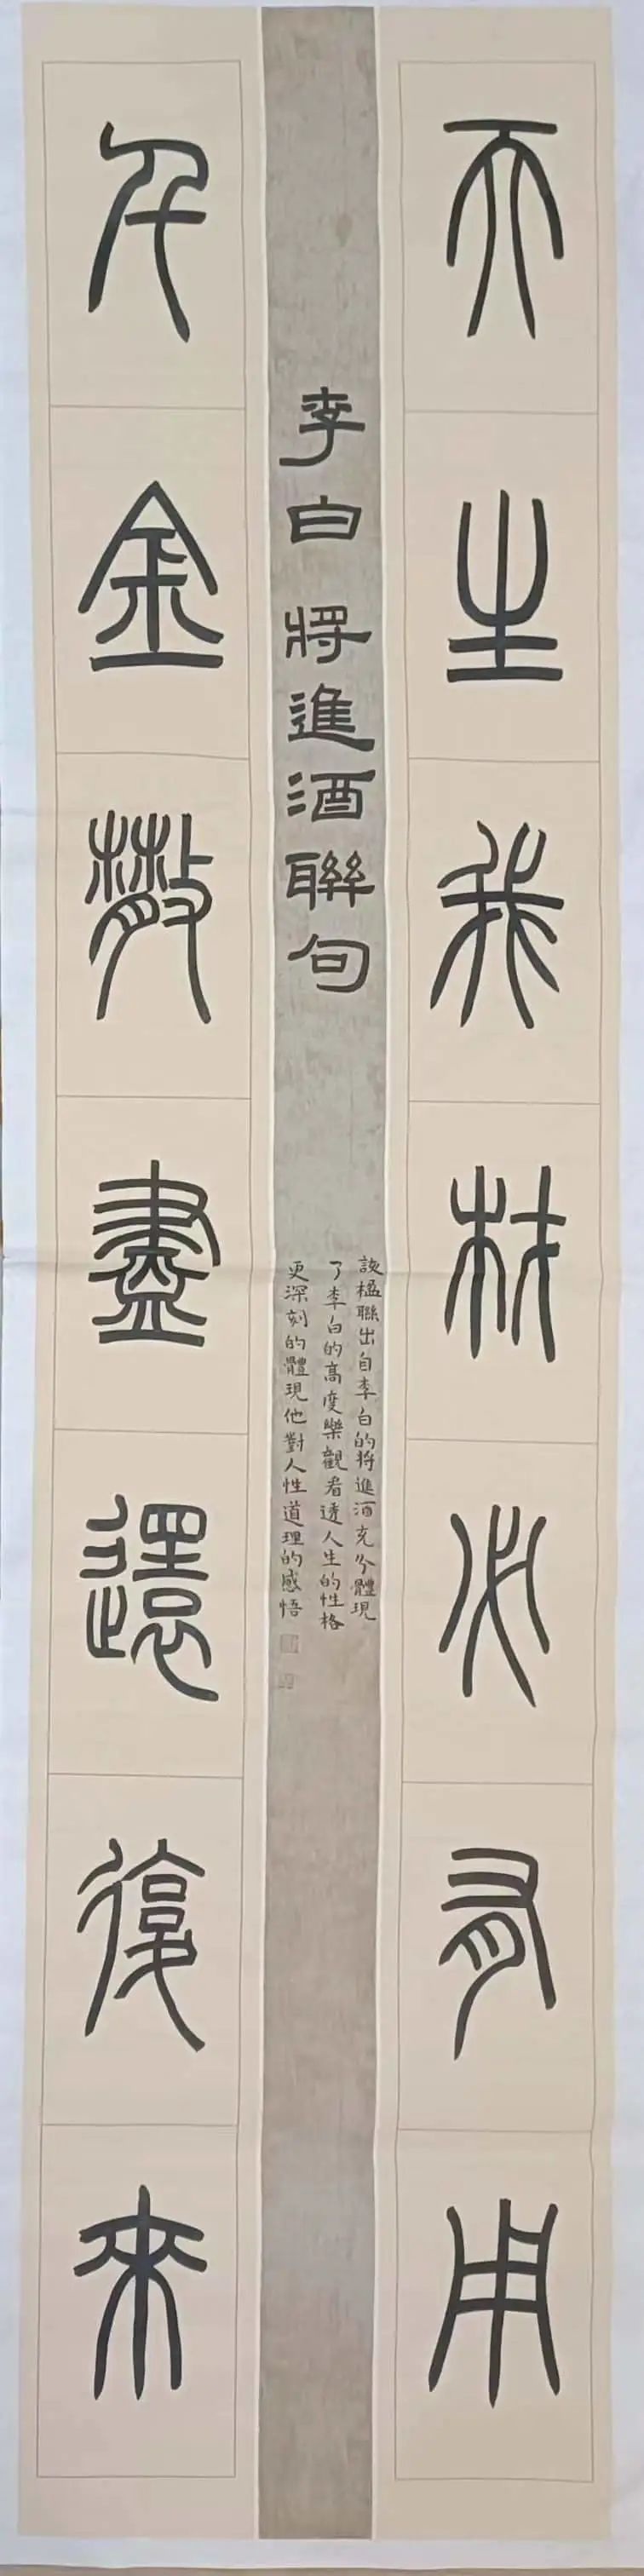 天生我材必有用
李白 將進酒聯句
該楹聯出自李白的將進酒充分體現
了李白的高度樂觀看透人生的性格
更深刻的體現他對人性道理的感悟
千金散盡還復來